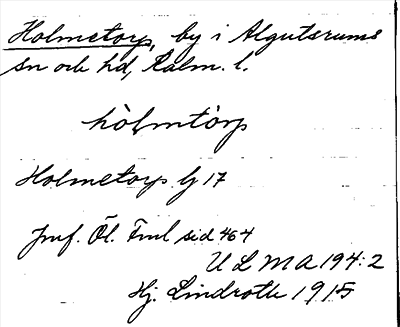 Holmetorp, by i Algutsrums
sn och hd, Kalm. l.
hòlmtòrp
Holmetorp bj 17
Jmf. Öl. Fml sid 464
U L M A 194:2
Hj. Lindroth 1915